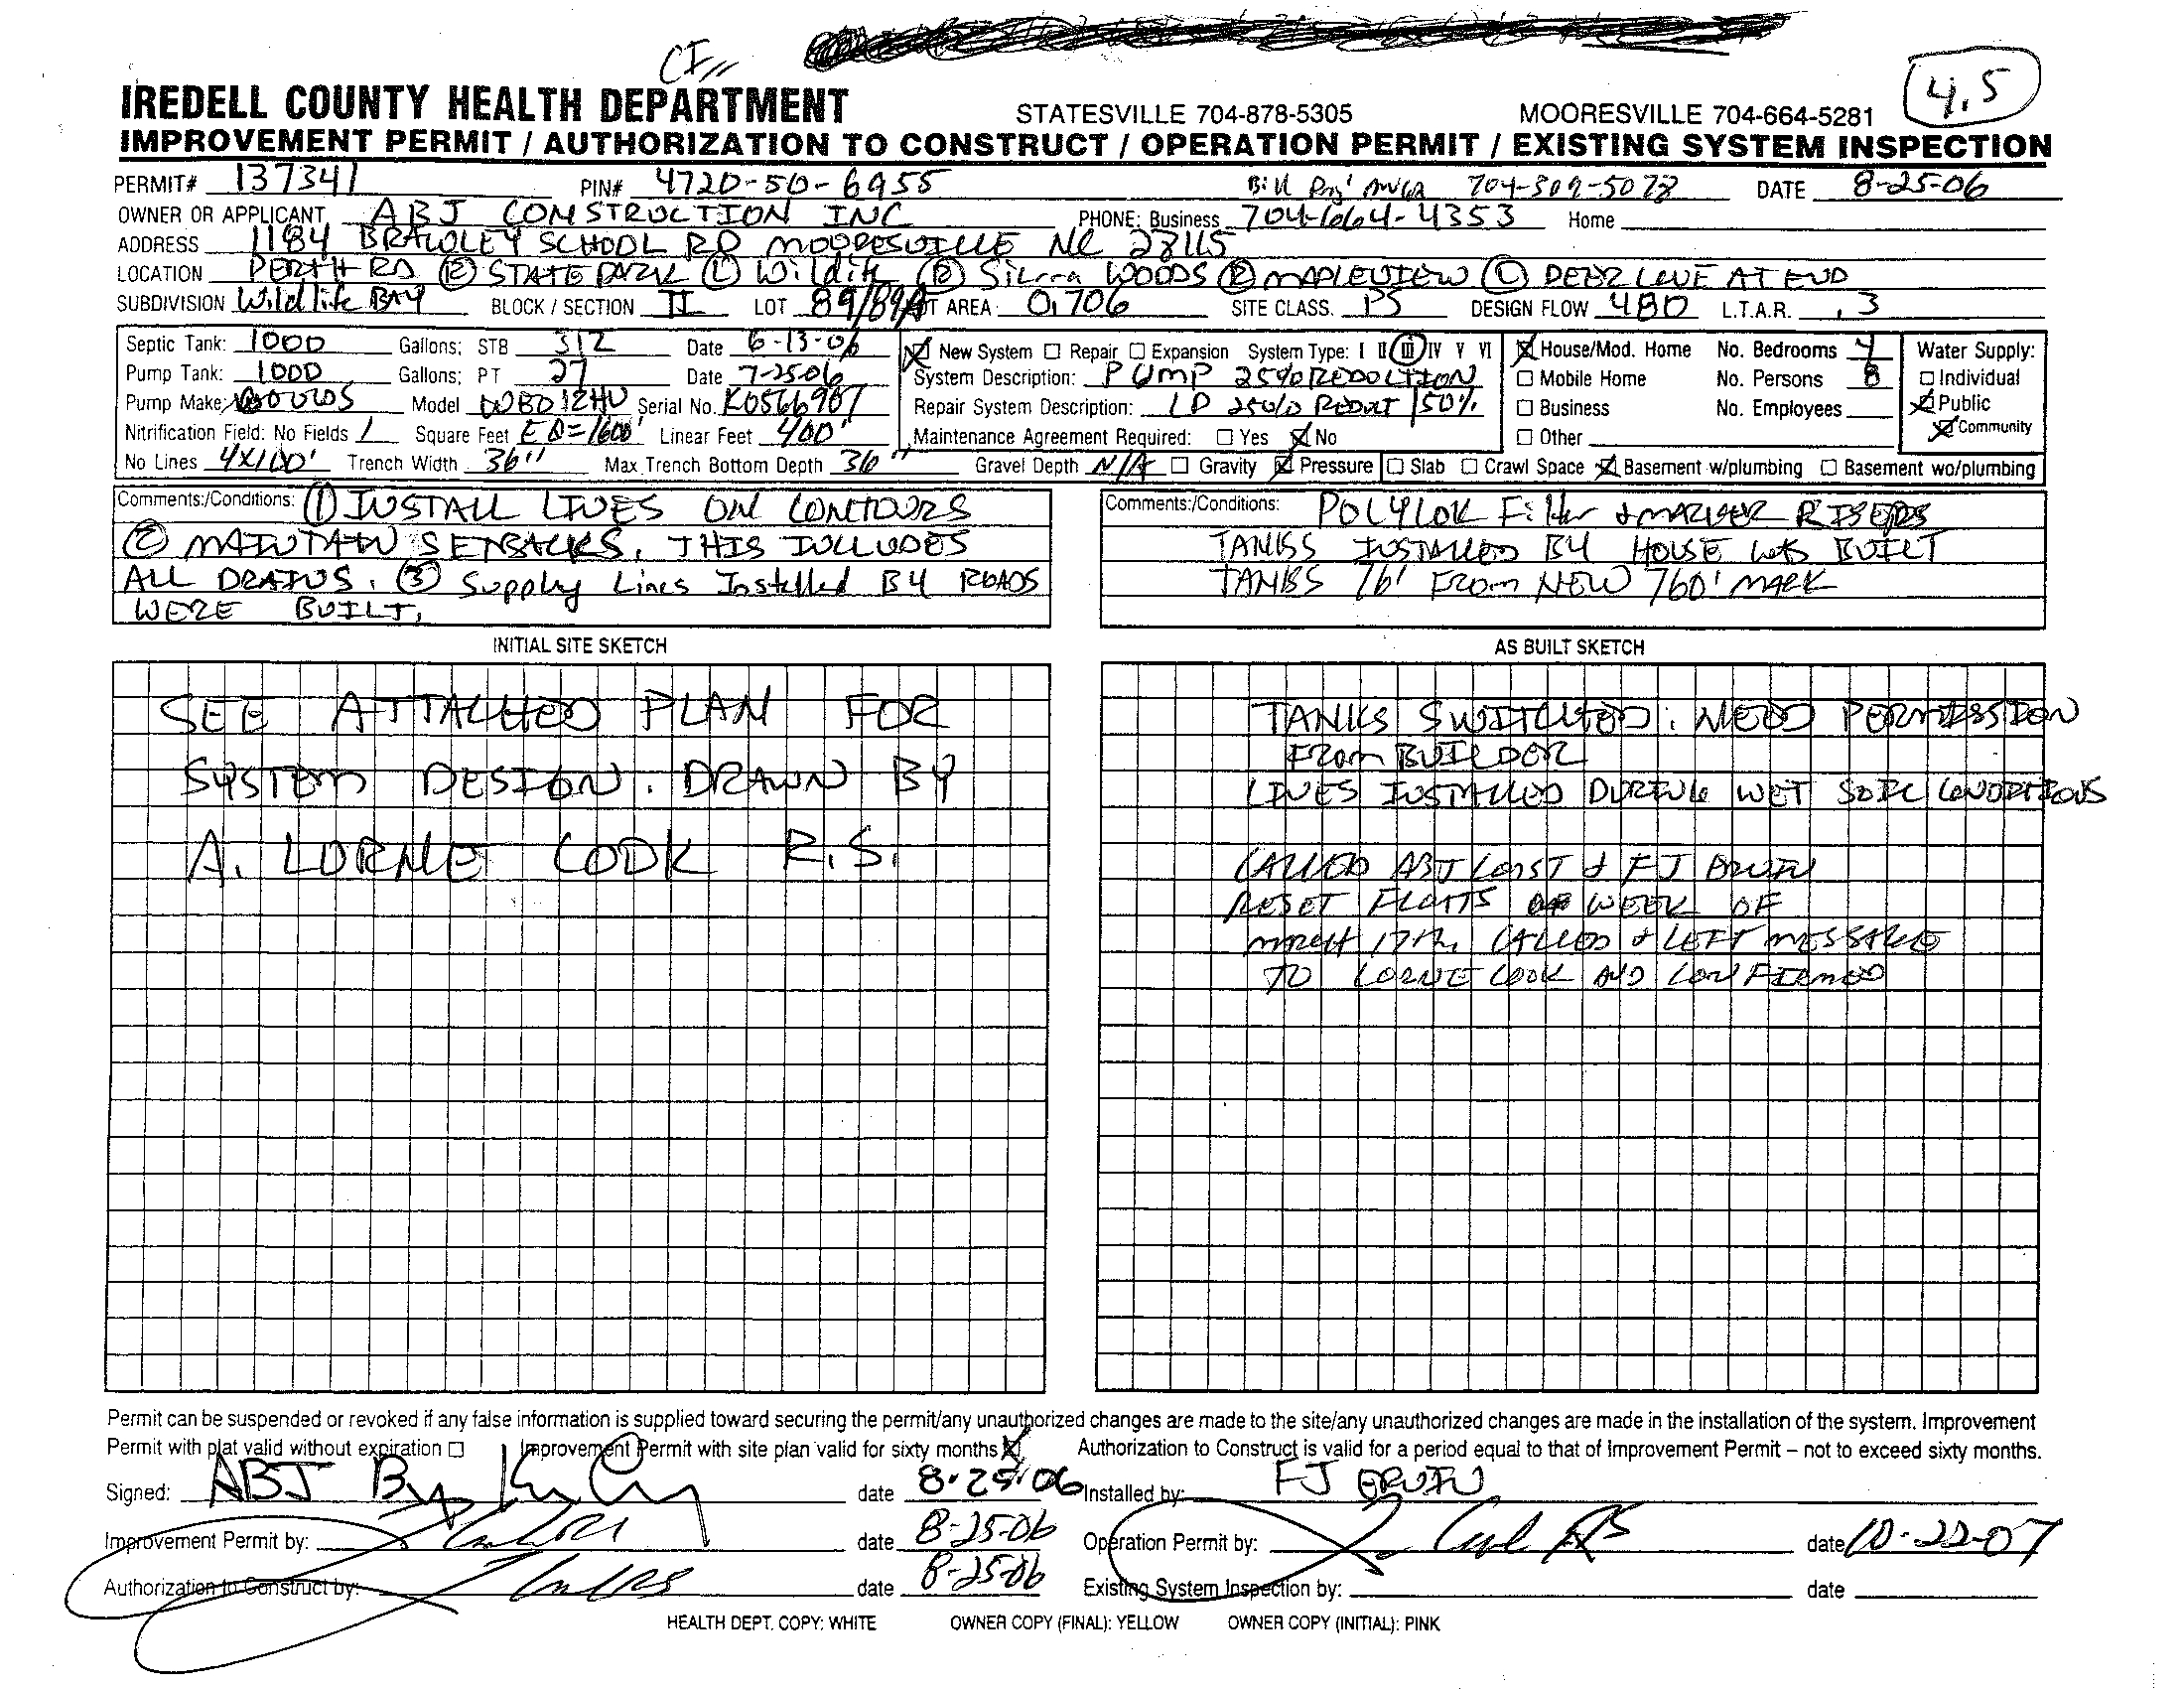 CI,,
4.5
IREDELL COUNTY HEALTH DEPARTMENT STATESVILLE 704-878-5305 MOORESVILLE 704-664-5281
IMPROVEMENT PERMIT / AUTHORIZATION TO CONSTRUCT / OPERATION PERMIT / EXISTING SYSTEM INSPECTION
PERMIT# 137341 PIN# 4720-50-6955 Bill 704-309-5078 DATE 8-25-06
OWNER OR APPLICANT ABJ CONSTRUCTION INC PHONE: Business 704-664-4353 Home
ADDRESS 1184 BRAWLEY SCHOOL RD MOORESVILLE NC 28115
LOCATION PERTH RD (R) STATE PARK (L) Wildlife (R) Sierra WOODS (R) MAPLEVIEW (L) DEER COVE AT END
SUBDIVISION Wildlife BAY BLOCK / SECTION II LOT 89/89A LOT AREA 0.706 SITE CLASS. PS DESIGN FLOW 480 L.T.A.R. .3
Septic Tank: 1000 Gallons; STB 312 Date 6-13-06
Pump Tank: 1000 Gallons; PT 27 Date 7-25-06
Pump Make GOULDS Model Serial No. K0566907
Nitrification Field: No Fields 1 Square Feet EQ=1600' Linear Feet 400'
No Lines 4X100' Trench Width 36" Max Trench Bottom Depth 36" Gravel Depth N/A Gravity Pressure Slab Crawl Space Basement w/plumbing Basement wo/plumbing
New System Repair Expansion System Type: I II III IV V VI
System Description: PUMP 25% REDUCTION
Repair System Description: LP 25% REDUCT / 50%
Maintenance Agreement Required: Yes No
House/Mod. Home No. Bedrooms 4
Mobile Home No. Persons 8
Business No. Employees
Other
Water Supply:
Individual
Public
Community
Comments:/Conditions: (1) INSTALL LINES ON CONTOURS
(2) MAINTAIN SETBACKS. THIS INCLUDES
ALL DRAINS. (3) Supply Lines Installed By ROADS
WERE BUILT.
Comments:/Conditions: POLYLOK Filter & RISERS
TANKS INSTALLED BY HOUSE WAS BUILT
TANKS 76' FROM NEW 760' MARK
INITIAL SITE SKETCH
SEE ATTACHED PLAN FOR
SYSTEM DESIGN. DRAWN BY
A. LORNE COOK R.S.
AS BUILT SKETCH
TANKS SWITCHED. NEED PERMISSION
FROM BUILDER
LINES INSTALLED DURING WET SOIL CONDITIONS
CALLED ABJ CONST & FJ ERWIN
RESET FLOATS WEEK OF
MARCH 17th. CALLED & LEFT MESSAGE
TO LORNE COOK AND CONFIRMED
Permit can be suspended or revoked if any false information is supplied toward securing the permit/any unauthorized changes are made to the site/any unauthorized changes are made in the installation of the system. Improvement
Permit with plat valid without expiration Improvement Permit with site plan valid for sixty months Authorization to Construct is valid for a period equal to that of Improvement Permit – not to exceed sixty months.
Signed: ABJ By date 8-25-06 Installed by: FJ ERWIN
Improvement Permit by: date 8-25-06 Operation Permit by: date 10-22-07
Authorization to Construct by: date 8-25-06 Existing System Inspection by: date
HEALTH DEPT. COPY: WHITE OWNER COPY (FINAL): YELLOW OWNER COPY (INITIAL): PINK